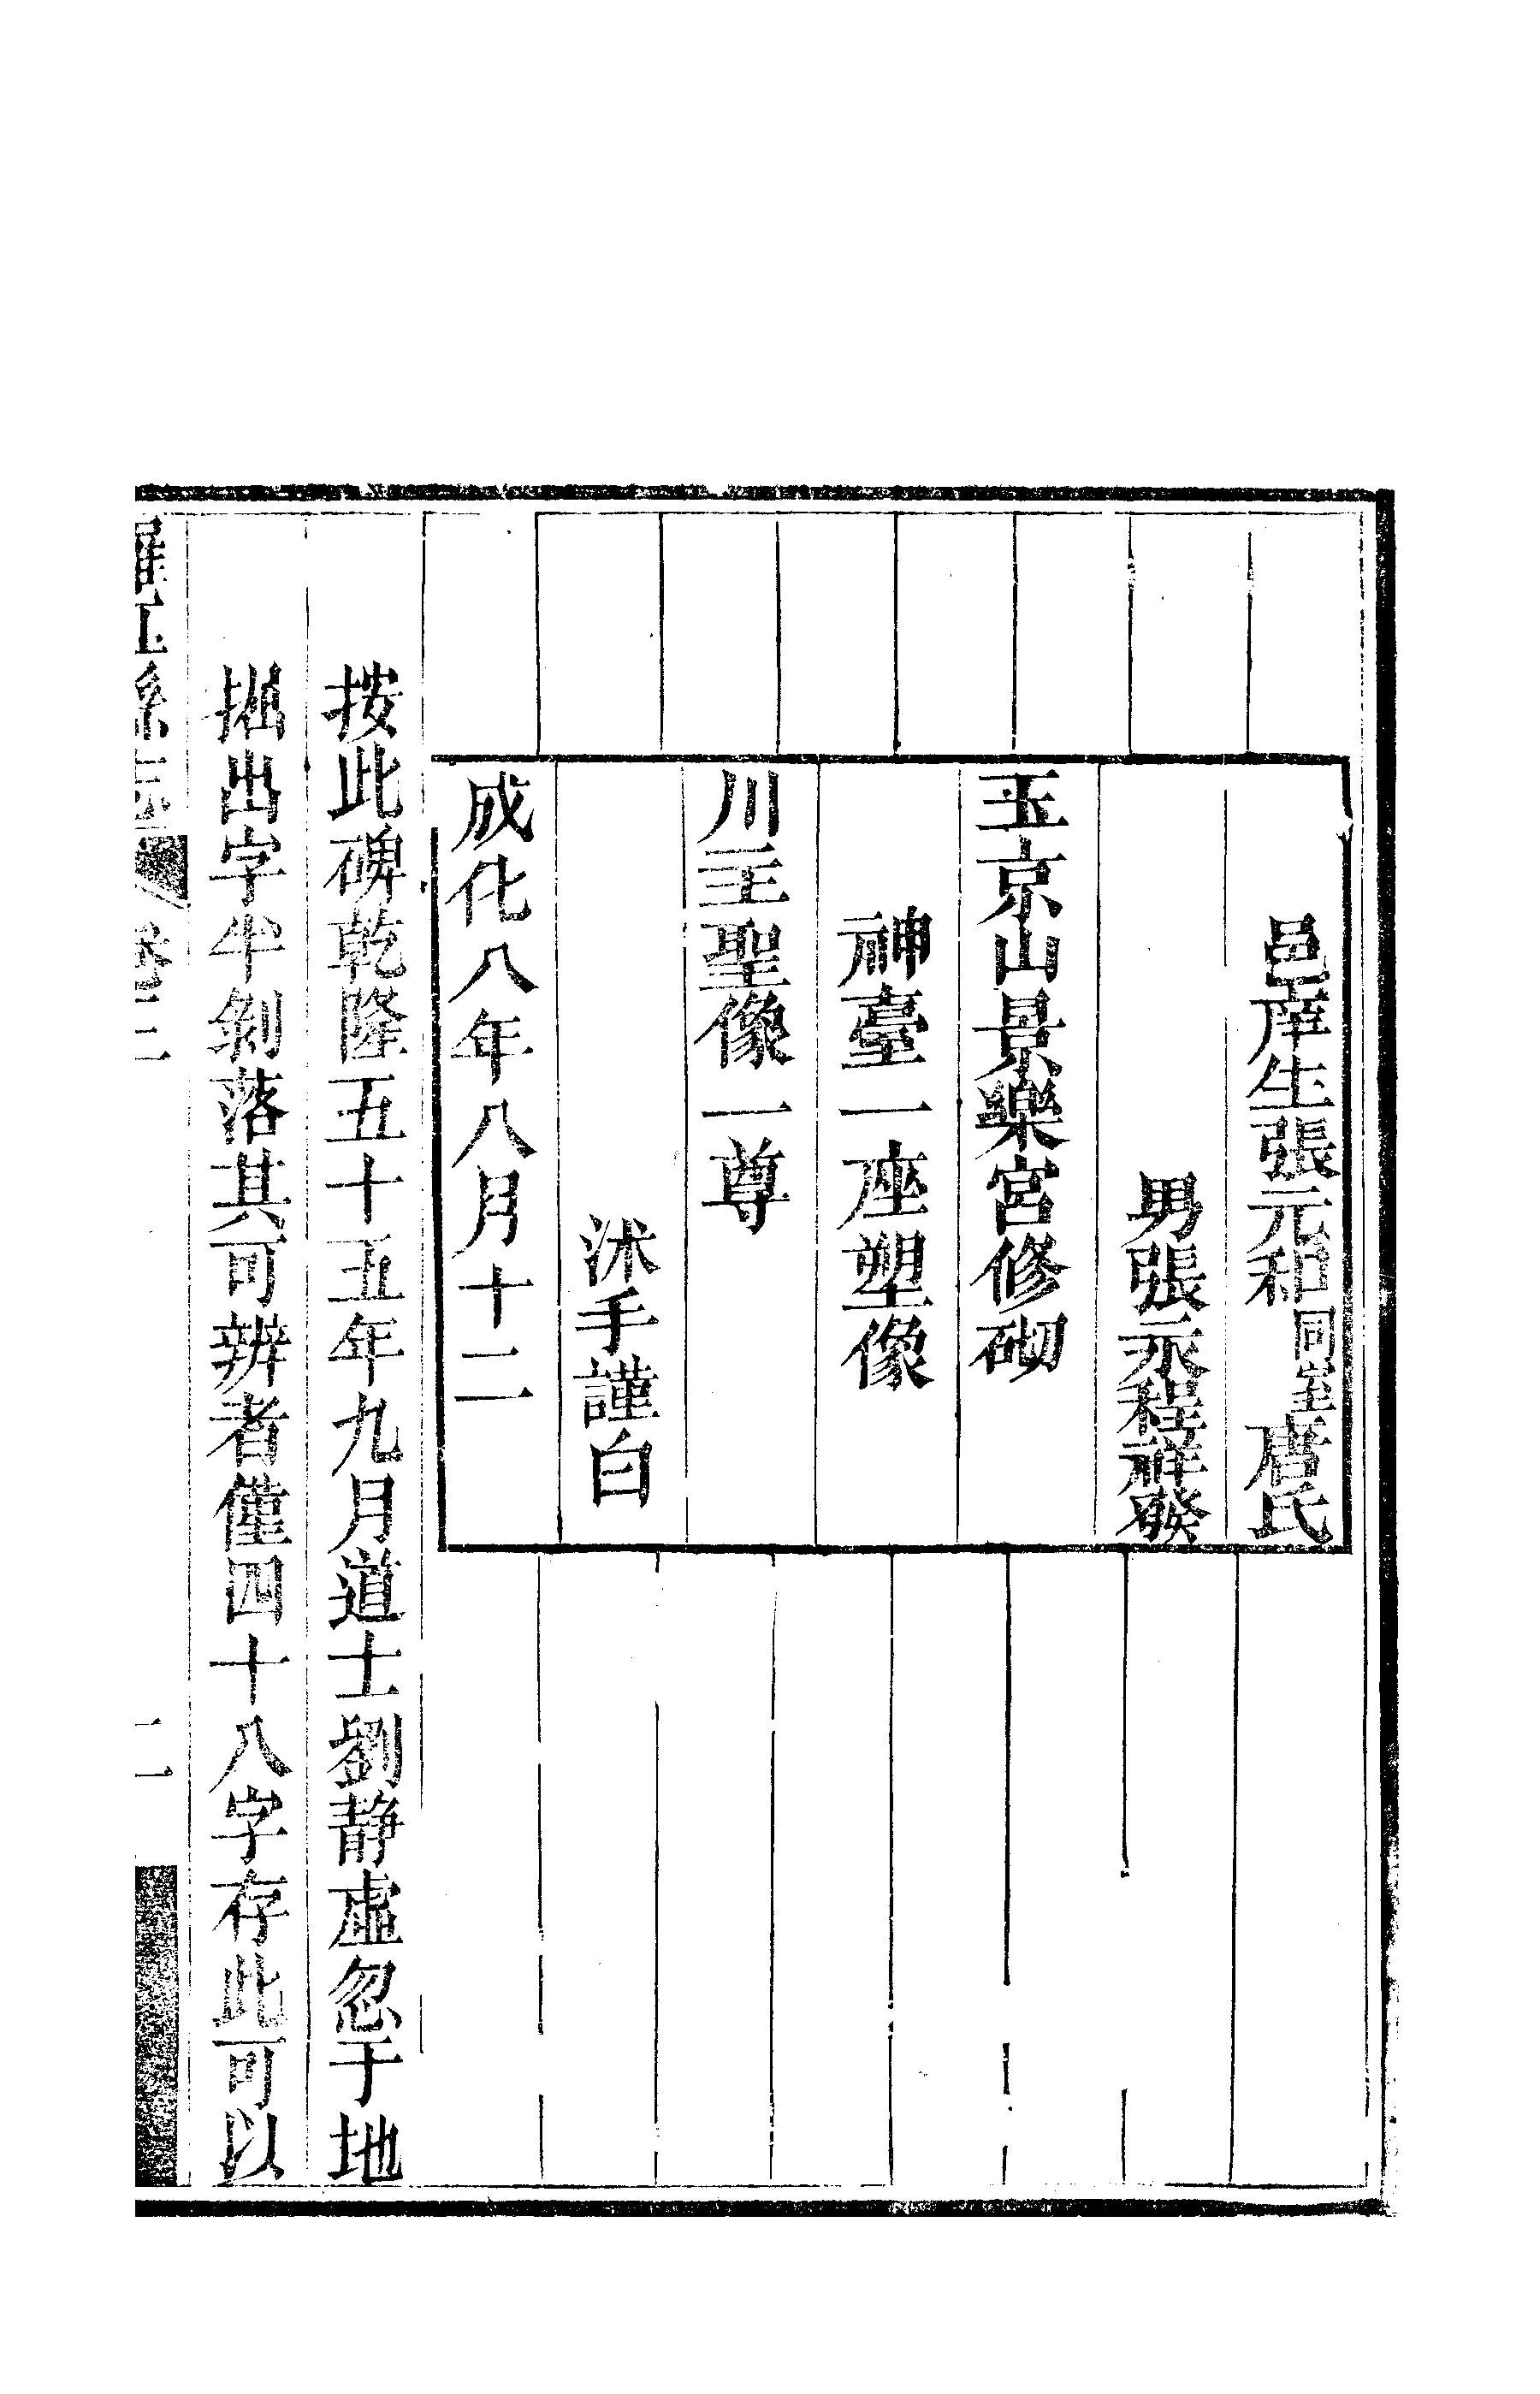 邑庠生張元和同室唐氏
男張永程祥發
玉京山景樂宮修砌
神臺一座塑像
川主聖像一尊
沐手謹白
成化八年八月十二
按此碑乾隆五十五年九月道士劉靜虛忽于地
掘出字半剝落其可辨者僅四十八字存此可以
羅江縣志
卷三
二